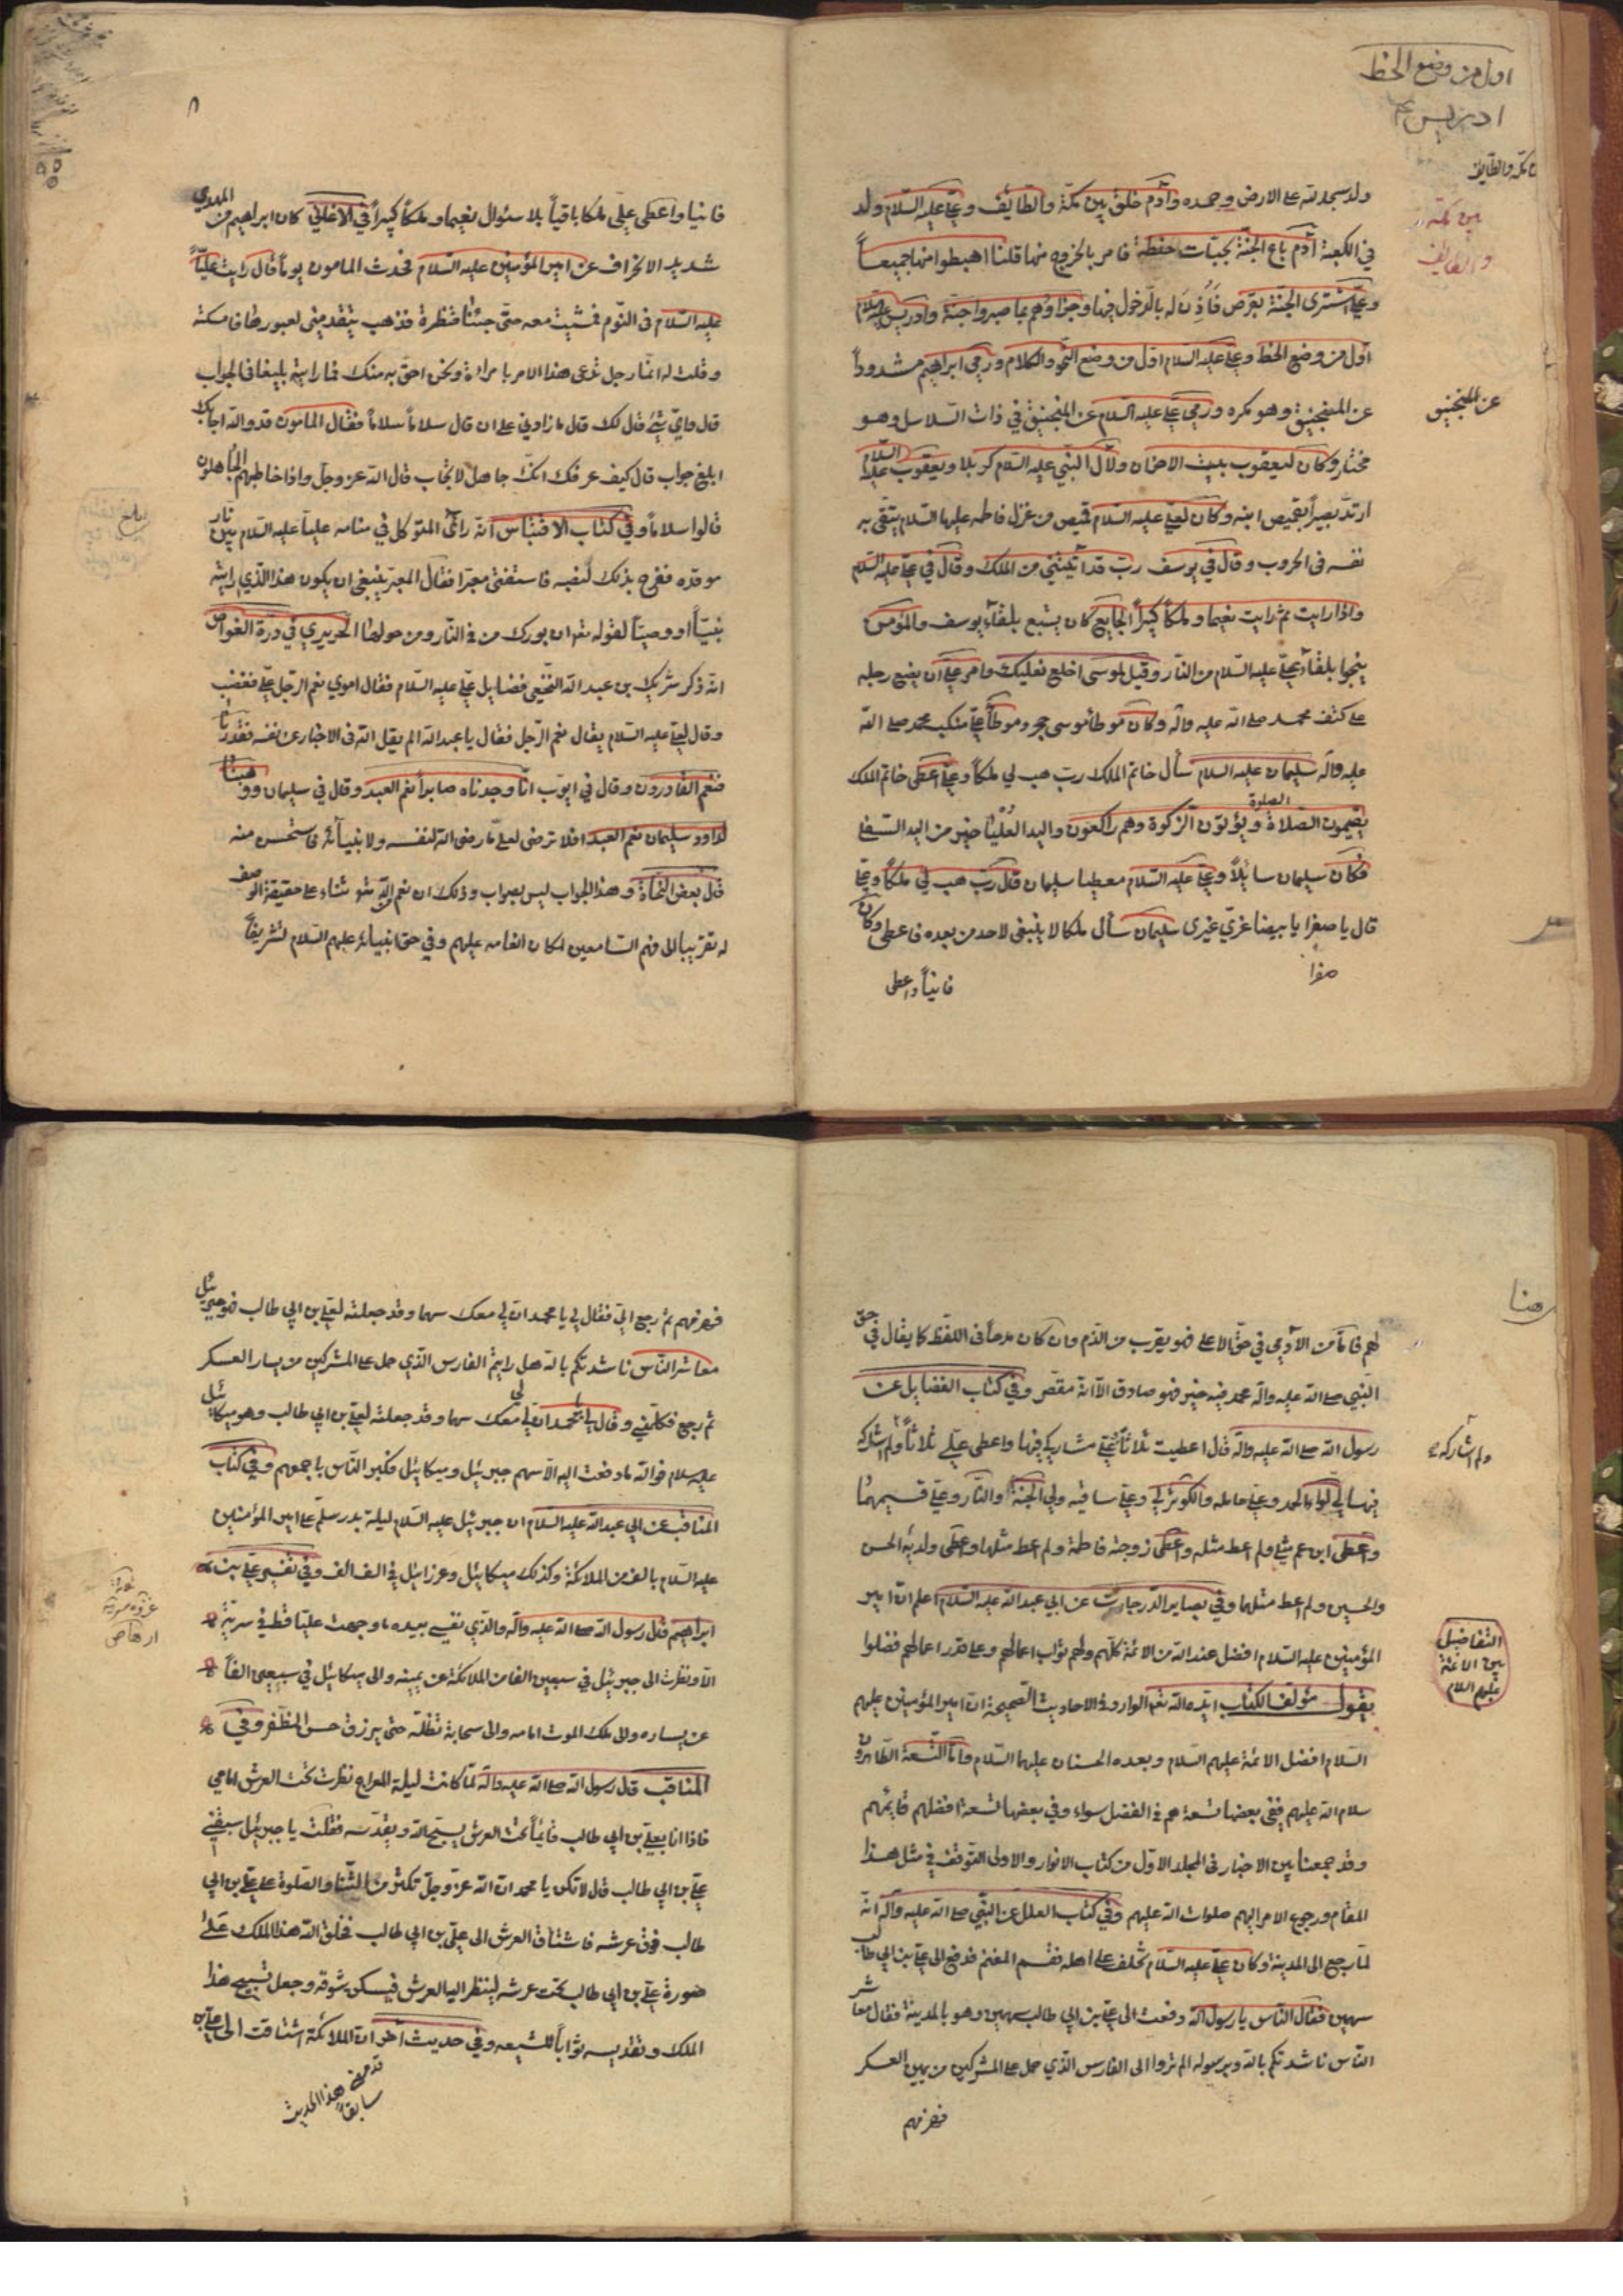 اول من وضع الخط
ادريس
مكة والطايف
بين مكة
والطايف
ولد سجد لله على الارض وحمده وآدم خلق بين مكة والطايف وعلي عليه السلام ولد
في الكعبة آدم باع الجنة بحبات حنطة فامر بالخروج منها قلنا اهبطوا منها جميعاً
وعلي اشترى الجنة بقرص فأذن له بالدخول فيها وجزاؤهم بما صبروا جنة وادريس عليه السلام
اول من وضع الخط وعلي عليه السلام اول من وضع النحو والكلام ورمي ابراهيم مشدوداً
عن المنجنيق وهو مكره ورمي علي عليه السلام عن المنجنيق في ذات السلاسل وهو
عن المنجنيق
مختار وكان ليعقوب بيت الاحزان ولآل النبي عليه السلام كربلا ويعقوب عليه السلام
ارتد بصيراً بقميص ابنه وكان لعلي عليه السلام قميص من غزل فاطمه عليها السلام يتقى به
نفسه فى الحروب وقال في يوسف رب قد آتيتني من الملك وقال في علي عليه السلام
واذا رايت ثم رايت نعيما وملكاً كبيراً الجايع كان يشبع بلقاء يوسف والمؤمن
ينجوا بلقاء علي عليه السلام من النار وقيل لموسى اخلع نعليك وامر علي ان يضع رجله
على كتف محمد صلى الله عليه وآله وكان موطأ موسى حجر وموطأ علي منكب محمد صلى الله
عليه وآله سليمان عليه السلام سأل خاتم الملك رب هب لي ملكاً وعلي اعطى خاتم الملك
يقيمون الصلاة ويؤتون الزكوة وهم راكعون واليد العليا خير من اليد السفلى
الصلوة
فكان سليمان سايلاً وعلي عليه السلام معطيا سليمان قال رب هب لي ملكاً وعلي
قال يا صفرا يا بيضا غري غيري سليمان سأل ملكا لا ينبغى لاحد من بعده فاعطى وكان
صفرا
فانياً واعطى
فانيا واعطى علي ملكا باقياً بلا سئوال نعيما وملكاً كبيراً في الاغاني كان ابراهيم بن المهدي
شديد الانحراف عن امير المؤمنين عليه السلام فحدث المامون يوماً قال رايت علياً
عليه السلام فى النوم فمشيت معه حتى جئنا قنطرة فذهب يتقدمني لعبورها فامسكته
وقلت له انما رجل تدعى هذا الامر بامراة ونحن احق به منك فما رايته بليغا فى الجواب
قال واي شئ قال لك قال ما زادني على ان قال سلاماً سلاماً فقال المامون قد والله اجابك
ابلغ جواب قال كيف عرفك انك جاهل لا تجاب قال الله عز وجل واذا خاطبهم الجاهلون
قالوا سلاماً وفي كتاب الاقتباس انه رائ المتوكل في منامه علياً عليه السلام بين نار
موقده ففرح بذلك لنصبه فاستفتى معبرا فقال المعبر ينبغى ان يكون هذا الذي رايته
نبياً او وصياً لقوله تعالى ان بورك من في النار ومن حولها الحريري في درة الغواص
انه ذكر شريك بن عبد الله النخعي فضايل علي عليه السلام فقال اموي نعم الرجل علي فغضب
وقال لعلي عليه السلام يقال نعم الرجل فقال يا عبد الله الم يقل الله فى الاخبار عن نفسه فقدرنا
فنعم القادرون وقال في ايوب انا وجدناه صابراً نعم العبد وقال في سليمان ووهبنا
لداود سليمان نعم العبد افلا ترضى لعلي ما رضى الله لنفسه ولانبيائه فاستحسن منه
قال بعض النحاة وهذا الجواب ليس بصواب وذلك ان نعم الله ثناء على حقيقة الوصف
له تقريبا الى فهم السامعين لمكان انعامه عليهم وفي حق انبيائه عليهم السلام تشريفاً
بلغ
هنا
لهم فاما من الآدمي في حق الاعلى فهو يقرب من الذم وان كان مدحاً فى اللفظ كما يقال في حق
النبي صلى الله عليه وآله محمد فيه خير فهو صادق الا انه مقصر وفي كتاب الفضايل عن
رسول الله صلى الله عليه وآله قال اعطيت ثلاثاً علي مشاركي فيها واعطى علي ثلاثاً ولم اشاركه
ولم اشاركه
فيها لي لواء الحمد وعلي حامله والكوثر لي وعلي ساقيه ولي الجنة والنار وعلي قسيمهما
واعطى ابن عم مثلي ولم اعط مثله واعطى زوجته فاطمة ولم اعط مثلها واعطى ولديه الحسن
والحسين ولم اعط مثلهما وفي بصاير الدرجات عن ابي عبد الله عليه السلام اعلم ان امير
المؤمنين عليه السلام افضل عند الله من الائمة كلهم ولهم ثواب اعمالهم وعلى قدر اعمالهم فضلوا
التفاضيل
بين الائمة
عليهم السلام
يقول مؤلف الكتاب ايده الله نعم الوارد في الاحاديث الصحيحة ان امير المؤمنين عليهم
السلام افضل الائمة عليهم السلام وبعده الحسنان عليهما السلام واما التسعة الطاهرون
سلام الله عليهم ففى بعضها تسعة هم في الفضل سواء وفي بعضها تسعة افضلهم قائمهم
وقد جمعنا بين الاخبار فى المجلد الاول من كتاب الانوار والاولى التوقف في مثل هذا
المقام ورجوع الامر اليهم صلوات الله عليهم وفي كتاب العلل عن النبي صلى الله عليه وآله انه
لما رجع الى المدينة وكان علي عليه السلام تخلف على اهله فقسم المغنم فدفع الى علي بن ابي طالب
سهمين فقال الناس يا رسول الله دفعت الى علي بن ابي طالب سهمين وهو بالمدينة فقال معاشر
الناس ناشدتكم بالله وبرسوله الم تروا الى الفارس الذي حمل على المشركين من يمين العسكر
فهزمهم
فهزمهم ثم رجع الي فقال لي يا محمد ان لي معك سهما وقد جعلته لعلي بن ابي طالب فهو جبرئيل
معاشر الناس ناشدتكم بالله هل رايتم الفارس الذي حمل على المشركين من يسار العسكر
ثم رجع فكلمني وقال يا محمد ان لي معك سهما وقد جعلته لعلي بن ابي طالب وهو ميكائيل
عليه سلام فوالله ما دفعت اليه الا سهم جبرئيل وميكائيل فكبر الناس باجمعهم وفي كتاب
المناقب عن ابي عبد الله عليه السلام ان جبرئيل عليه السلام ليلة بدر سلم على امير المؤمنين
عليه السلام بالف من الملائكة وكذلك ميكائيل وعزرائيل في الف الف وفي تفسير علي بن
ابراهيم قال رسول الله صلى الله عليه وآله والذي نفسي بيده ما وجهت علياً قط في سرية
غزوة سرية
ارهاص
الا ونظرت الى جبرئيل في سبعين الفا من الملائكة عن يمينه والى ميكائيل في سبعين الفاً
عن يساره والى ملك الموت امامه والى سحابة تظله حتى يرزق حسن الظفر وفي
المناقب قال رسول الله صلى الله عليه وآله لما كانت ليلة المعراج نظرت تحت العرش امامي
فاذا انا بعلي بن ابي طالب قائماً تحت العرش يسبح الله ويقدسه فقلت يا جبرئيل سبقني
علي بن ابي طالب قال لا لكن يا محمد ان الله عز وجل تكثر من الثنا والصلوة على علي بن ابي
طالب فوق عرشه فاشتاق العرش الى علي بن ابي طالب فخلق الله هذا الملك على
صورة علي بن ابي طالب تحت عرشه لينظر اليه العرش فيسكن شوقه وجعل تسبيح هذا
الملك وتقديسه ثواباً للشيعه وفي حديث آخر ان الملائكة اشتاقت الى علي
قد مضى هذا الحديث
سابقاً